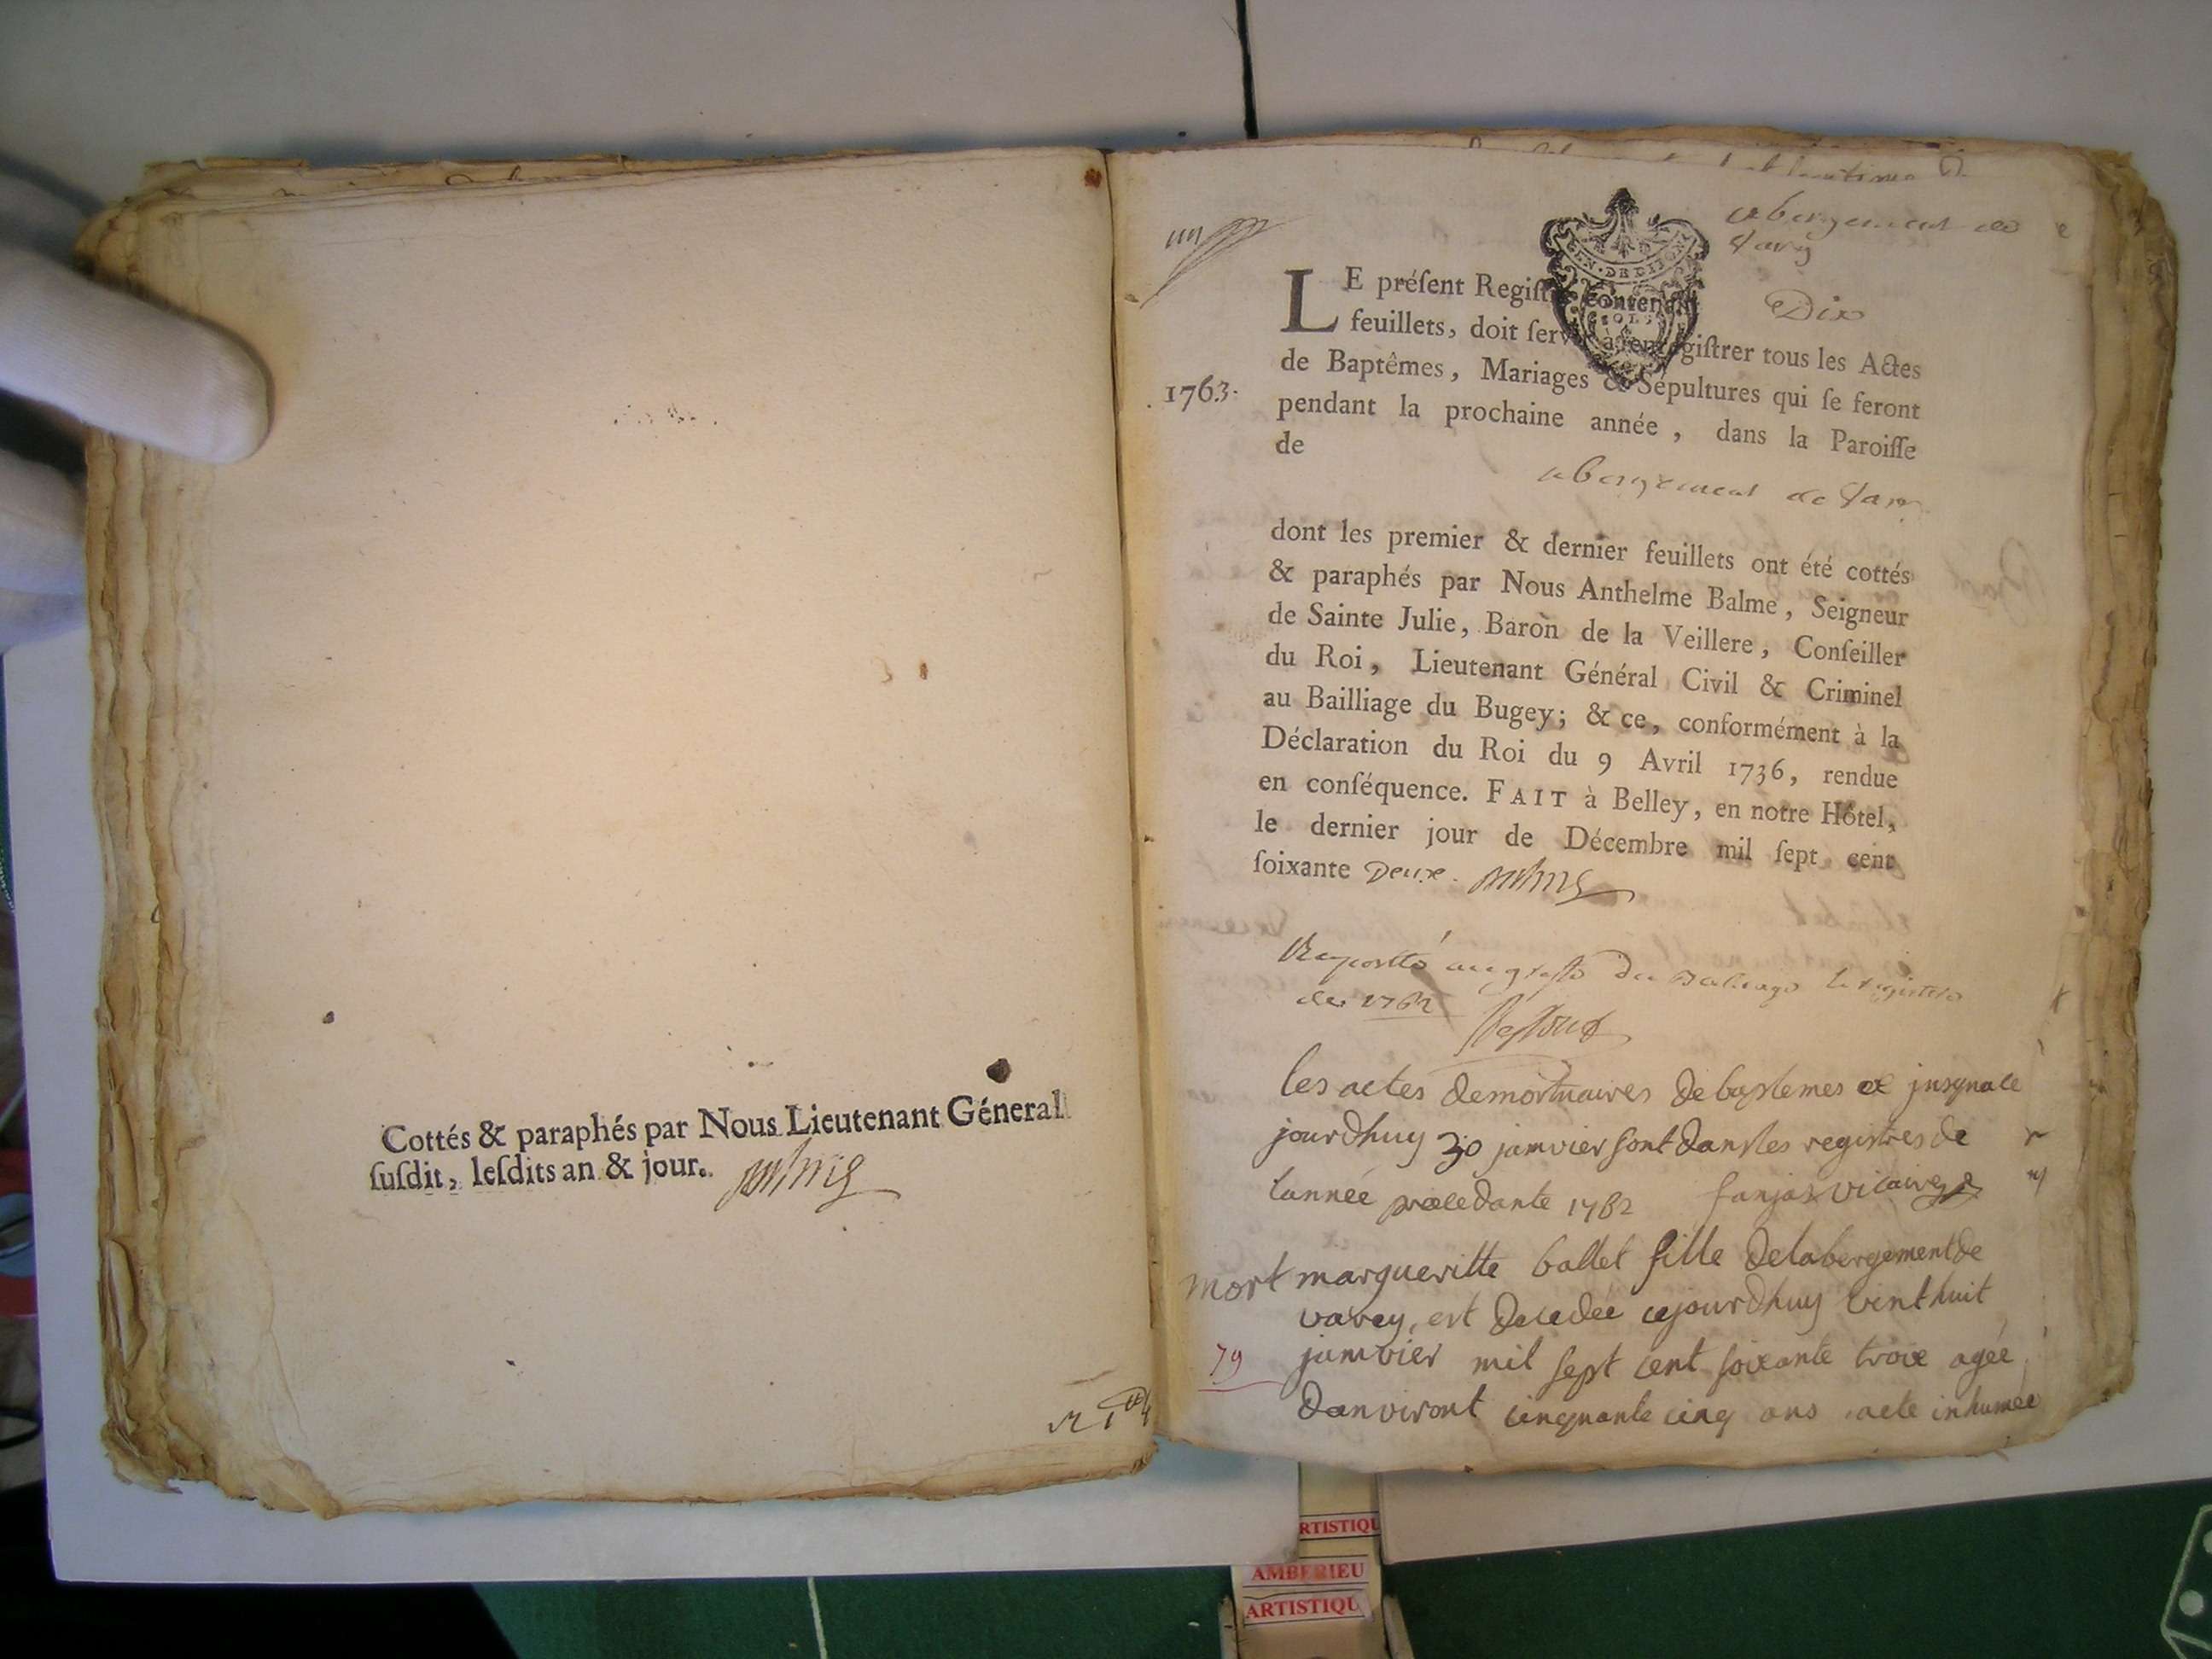 Cottés & paraphés par Nous Lieutenant Géneral
ſuſdit, leſdits an & jour.
un
abergement de
Varey
LE préſent Regiſtre contenant Dix
feuillets, doit ſervir à enregiſtrer tous les Actes
de Baptêmes, Mariages & Sépultures qui ſe feront
1763.
pendant la prochaine année, dans la Paroiſſe
de
abergement de Varey
dont les premier & dernier feuillets ont été cottés
& paraphés par Nous Anthelme Balme, Seigneur
de Sainte Julie, Baron de la Veillere, Conſeiller
du Roi, Lieutenant Général Civil & Criminel
au Bailliage du Bugey; & ce, conformément à la
Déclaration du Roi du 9 Avril 1736, rendue
en conſéquence. FAIT à Belley, en notre Hôtel,
le dernier jour de Décembre mil ſept cent
ſoixante Deux.
Raporté au greffe du Baliage le registre
de 1762
les actes demortuaires de baptemes et jusqua ce
jourdhuy 30 janvier sont dans les registres de
lannée precedante 1762 fanjas vicaire
mort margueritte ballet fille delabergement de
varey, est decedée cejourdhuy vint huit
79 janvier mil sept cent soixante troix agée
danviront cinquante cinq ans aete inhumée
RTISTIQU
AMBERIEU
ARTISTIQU